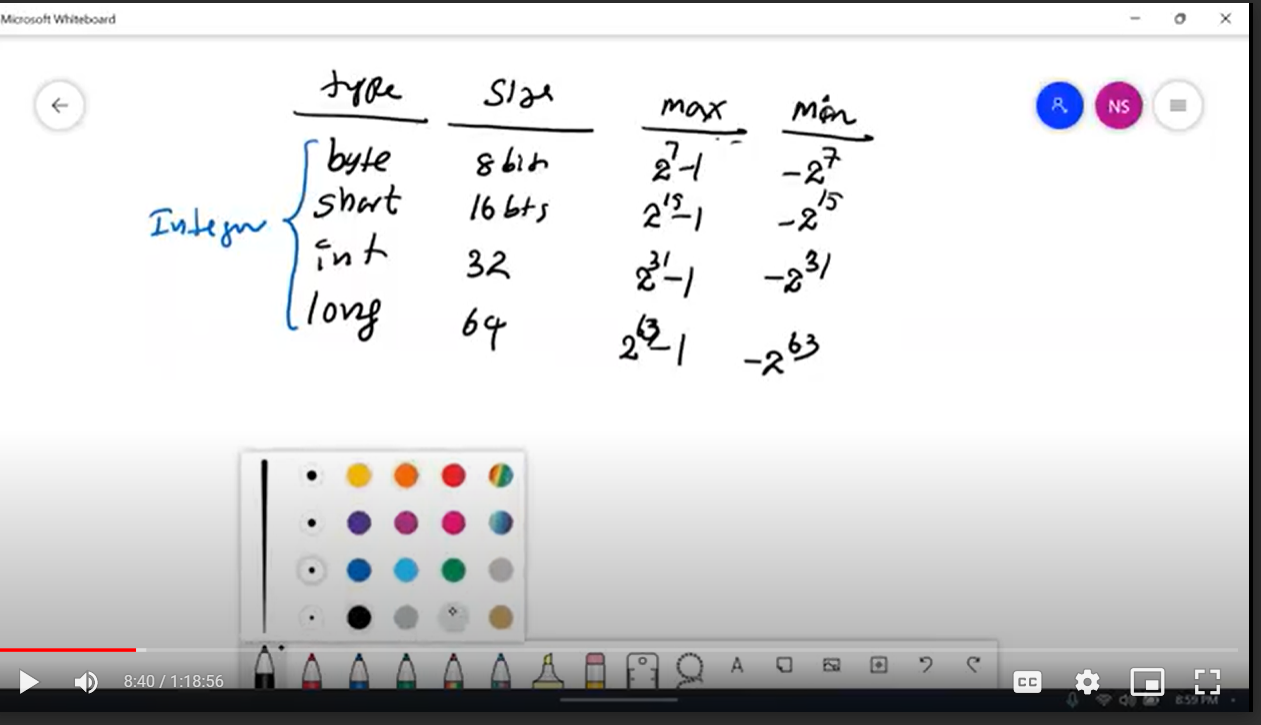 Microsoft Whiteboard
type size max min
byte 8 bits 2^7-1 -2^7
short 16 bts 2^15-1 -2^15
int 32 2^31-1 -2^31
long 64 2^63-1 -2^63
Integer
NS
A
8:40 / 1:18:56
CC
8:59 PM